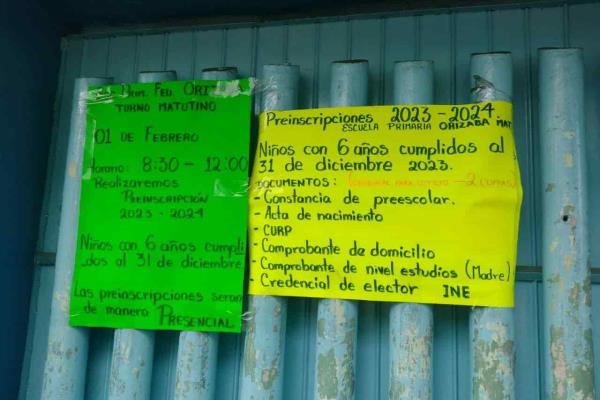 Prim. Fed. Ori
Turno Matutino
01 de Febrero
Horario: 8:30 - 12:00
Realizaremos
Preinscripción
2023 - 2024
Niños con 6 años cumpli
dos al 31 de diciembre
Las preinscripciones seran
de manera Presencial
Preinscripciones 2023 - 2024
Escuela Primaria Orizaba Mat
Niños con 6 años cumplidos al
31 de diciembre 2023.
Documentos: 2
- Constancia de preescolar.
- Acta de nacimiento
- CURP
- Comprobante de domicilio
- Comprobante de nivel estudios (Madre)
- Credencial de elector INE